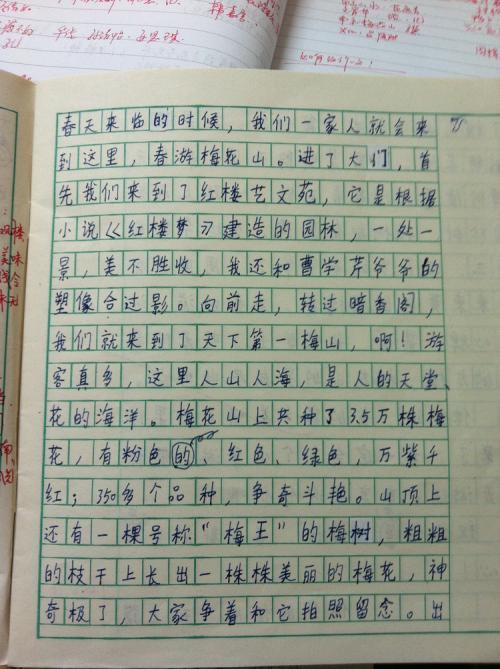 春天来临的时候，我们一家人就会来
到这里，春游梅花山。进了大们，首
先我们来到了红楼艺文苑，它是根据
小说《红楼梦》建造的园林，一处一
景，美不胜收，我还和曹学芹爷爷的
塑像合过影。向前走，转过暗香阁，
我们就来到了天下第一梅山，啊！游
客真多，这里人山人海，是人的天堂、
花的海洋。梅花山上共种了3.5万株梅
花，有粉色的、红色、绿色，万紫千
红；350多个品种，争奇斗艳。山顶上
还有一棵号称“梅王”的梅树，粗粗
的枝干上长出一株株美丽的梅花，神
奇极了，大家争着和它拍照留念。出